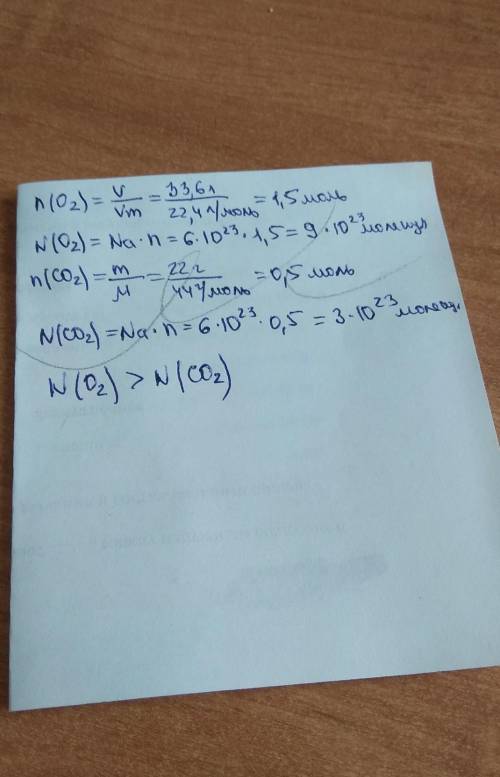 n(O₂) = V/Vm = 33,6л/22,4л/моль = 1,5 моль
N(O₂) = Na · n = 6·10²³ · 1,5 = 9·10²³ молекул
n(CO₂) = m/M = 22г/44г/моль = 0,5 моль
N(CO₂) = Na · n = 6·10²³ · 0,5 = 3·10²³ молекул.
N(O₂) > N(CO₂)